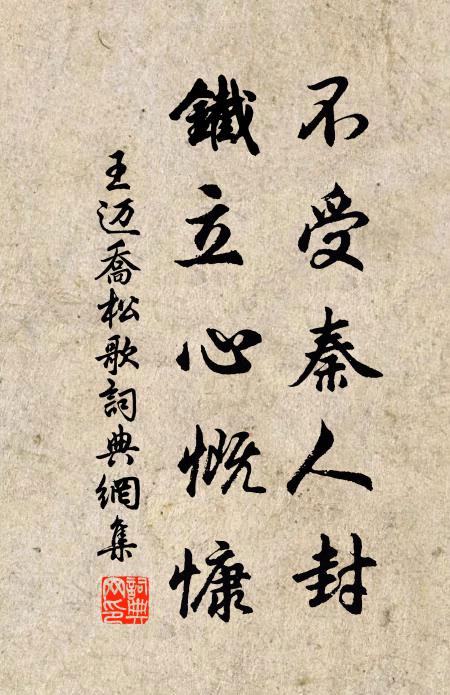 不受秦人封
鐵立心慨慷
王迈喬松歌詞典網集
詞典網印